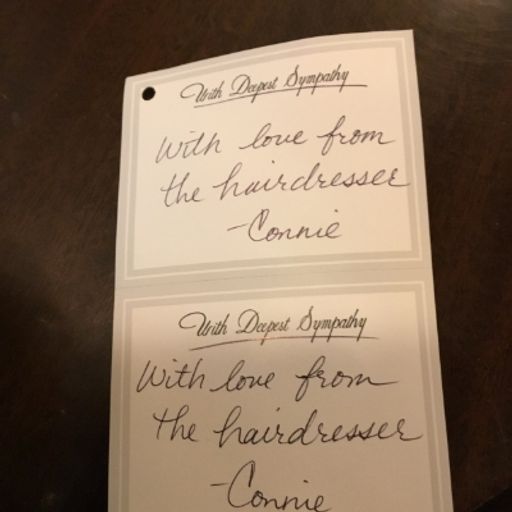 With Deepest Sympathy
With love from
the hairdresser
-Connie
With Deepest Sympathy
With love from
the hairdresser
-Connie